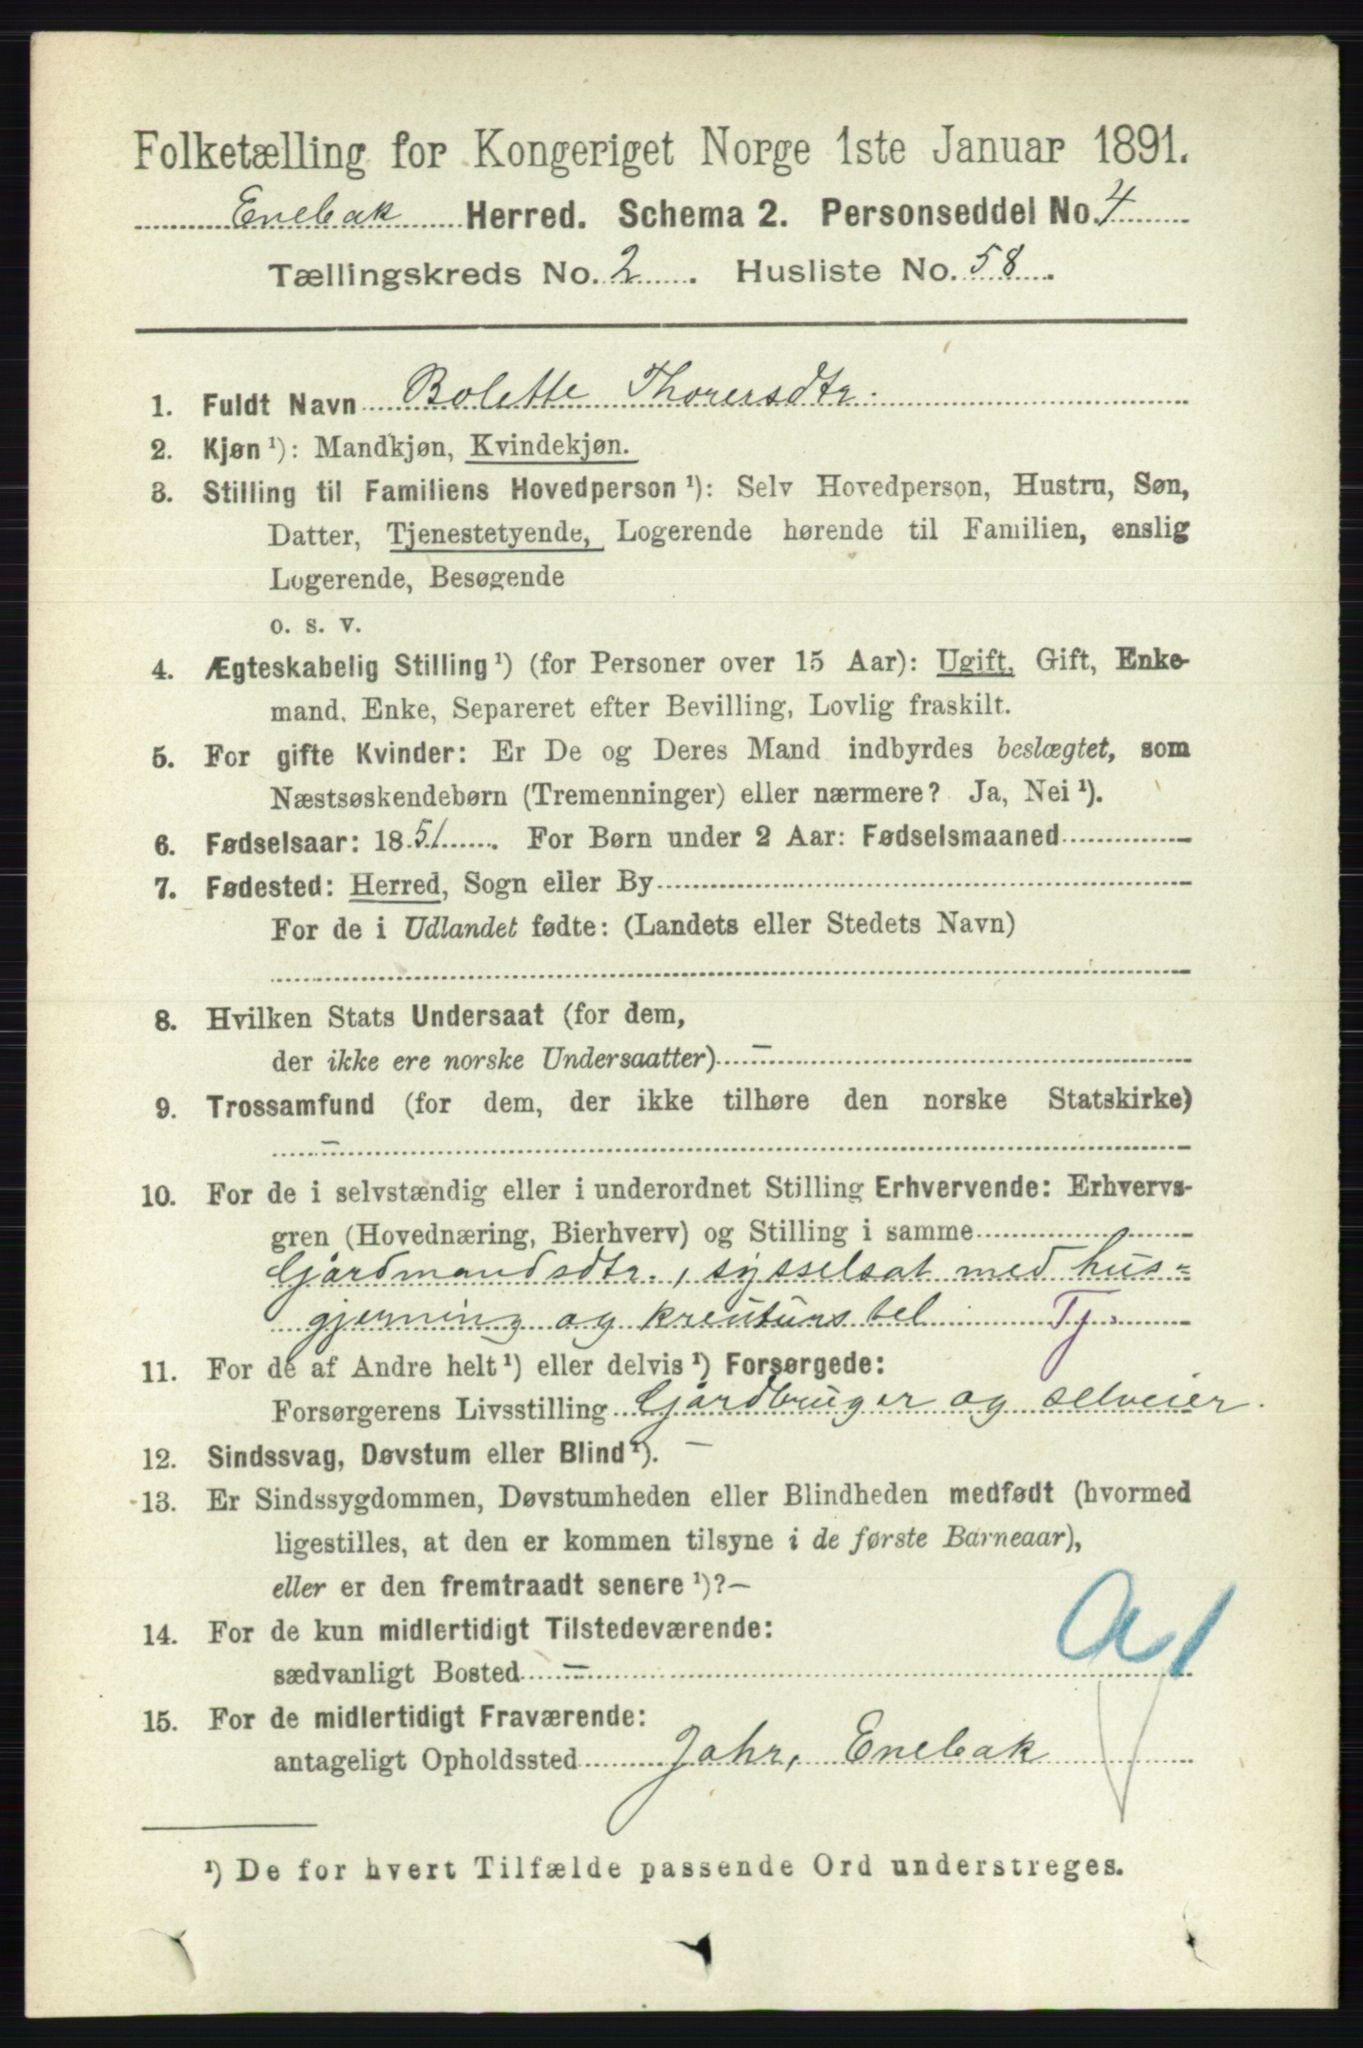 Folketælling for Kongeriget Norge 1ste Januar 1891.
Enebak Herred. Schema 2. Personseddel No. 4
Tællingskreds No. 2 . Husliste No. 58 .
1. Fuldt Navn Bolette Thorersdtr.
2. Kjøn ¹): Mandkjøn, Kvindekjøn.
3. Stilling til Familiens Hovedperson ¹): Selv Hovedperson, Hustru, Søn,
Datter, Tjenestetyende, Logerende hørende til Familien, enslig
Logerende, Besøgende
o. s. v.
4. Ægteskabelig Stilling ¹) (for Personer over 15 Aar): Ugift, Gift, Enke-
mand, Enke, Separeret efter Bevilling, Lovlig fraskilt.
5. For gifte Kvinder: Er De og Deres Mand indbyrdes beslægtet, som
Næstsøskendebørn (Tremenninger) eller nærmere? Ja, Nei ¹).
6. Fødselsaar: 1851 . For Børn under 2 Aar: Fødselsmaaned
7. Fødested: Herred, Sogn eller By
For de i Udlandet fødte: (Landets eller Stedets Navn)
8. Hvilken Stats Undersaat (for dem,
der ikke ere norske Undersaatter) –
9. Trossamfund (for dem, der ikke tilhøre den norske Statskirke)
–
10. For de i selvstændig eller i underordnet Stilling Erhvervende: Erhvervs-
gren (Hovednæring, Bierhverv) og Stilling i samme
Gjårdmandsdtr., sysselsat med hus=
gjerning og kreaturstel Tj.
11. For de af Andre helt ¹) eller delvis ¹) Forsørgede:
Forsørgerens Livsstilling Gjårdbruger og selveier.
12. Sindssvag, Døvstum eller Blind ¹). –
13. Er Sindssygdommen, Døvstumheden eller Blindheden medfødt (hvormed
ligestilles, at den er kommen tilsyne i de første Barneaar),
eller er den fremtraadt senere ¹)? –
14. For de kun midlertidigt Tilstedeværende:
sædvanligt Bosted –
a 1
15. For de midlertidigt Fraværende:
antageligt Opholdssted Jahr, Enebak
¹) De for hvert Tilfælde passende Ord understreges.